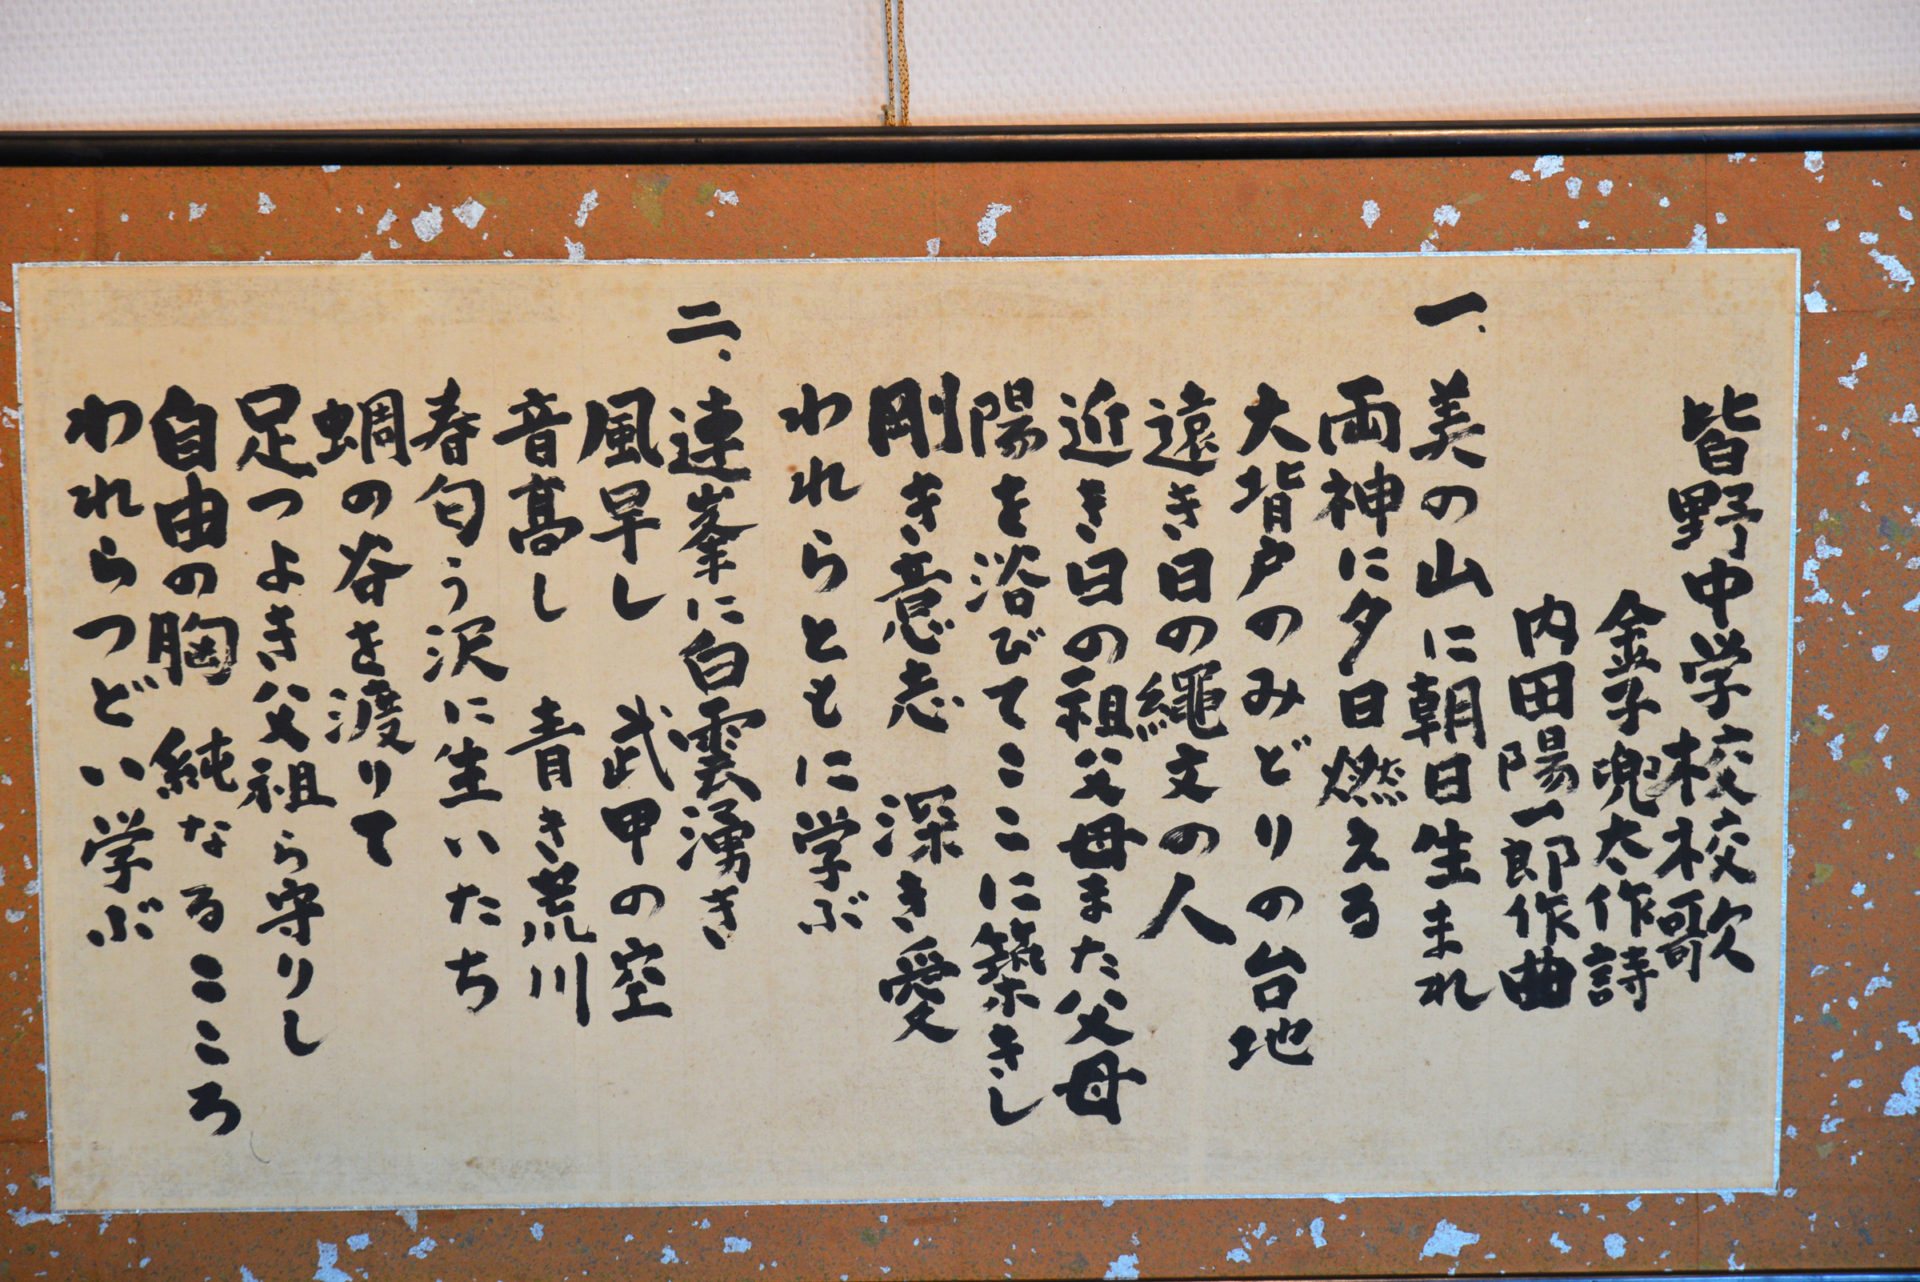 皆野中学校校歌
金子兜太作詩
内田陽一郎作曲
一、美の山に朝日生まれ
両神に夕日燃える
大背戸のみどりの台地
遠き日の縄文の人
近き日の祖父母また父母
陽を浴びてここに築きし
剛き意志 深き愛
われらともに学ぶ
二、連峯に白雲湧き
風早し 武甲の空
音高し 青き荒川
春匂う沢に生いたち
蜩の谷を渡りて
足つよき父祖ら守りし
自由の胸 純なるこころ
われらつどい学ぶ